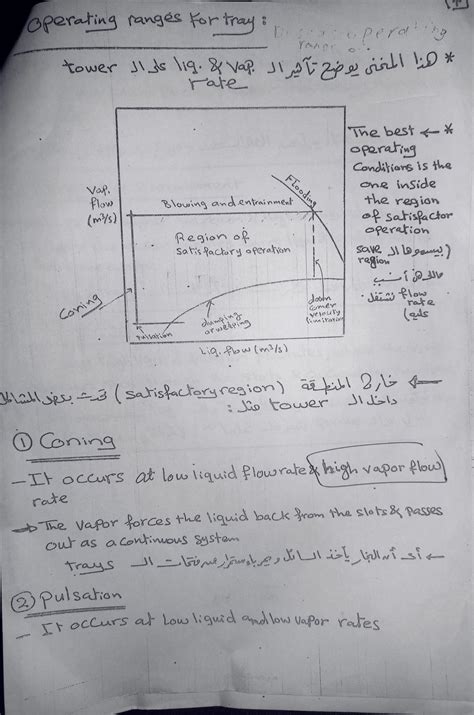 operating ranges for tray :
* هذا المنحنى يوضح تأثير ال liq. & vap. على ال tower
rate
The best ← *
operating
Conditions is the
one inside
the region
of satisfactor
operation
(بيسموها ال save
region
flow
rate
Flooding
Vap.
flow
(m³/s)
Blowing and entrainment
Region of
satisfactory operation
Coning
Pulsation
dumping
or weeping
down
comer
velocity
limitation
Liq. flow (m³/s)
خارج المنطقة (satisfactory region) تحدث بعض المشاكل
داخل ال tower مثل :
① Coning
- It occurs at low liquid flowrate & high vapor flow
rate
→ The vapor forces the liquid back from the slots & passes
out as a continuous system
← أى أن البخار يأخذ السائل ال Trays
② pulsation
- It occurs at low liquid and low vapor rates